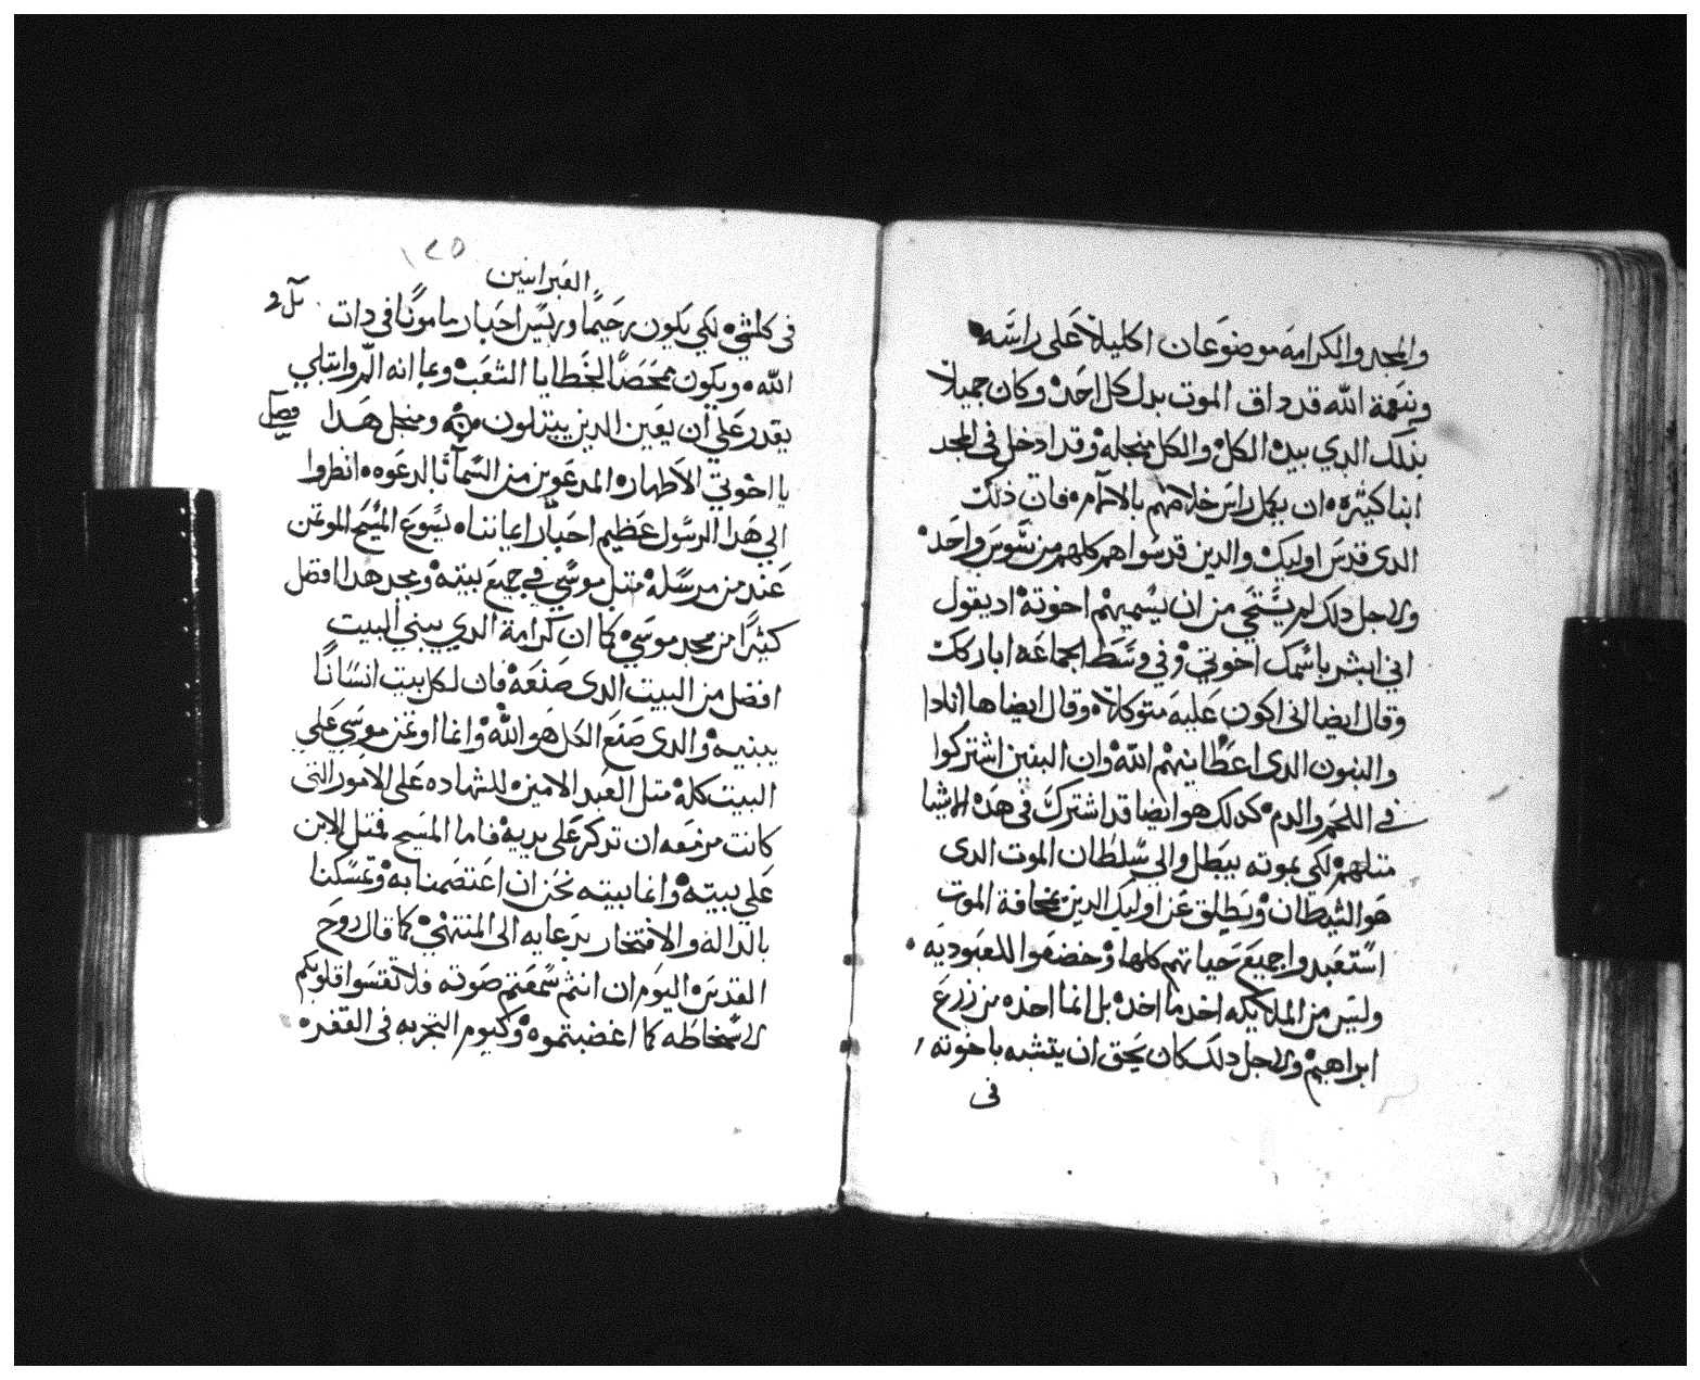 والمجد والكرامة موضوعان اكليلاً على راسه
وبنعمة الله قد داق الموت بدل كل احد وكان جميلاً
بذلك الدي بيده الكل والكل منجله وقد ادخل في المجد
ابنا كثيره ان يكمل راس خلاصهم بالالام فان ذلك
الدى قدس اوليك والدين قدسوا هم كلهم من واحد
ولاجل دلك لم يستحي من ان يسميهم اخوته اد يقول
اني ابشر باسمك اخوتي وفي وسط الجماعه اباركك
وقال ايضا انى اكون عليه متوكلاً وقال ايضا ها انا دا
والبنون الدى اعطانيهم الله وان البنين اشتركوا
في اللحم والدم كدلك هو ايضا قد اشترك في هده الاشيا
متلهم لكي بموته يبطل والي سلطان الموت الدى
هو الشيطان ويطلق عن اوليك الدين بمخافة الموت
استعبدوا جميع حياتهم كلها وخضعوا للعبوديه
وليس من الملايكه اخد ما اخده بل انما اخده من زرع
ابراهيم ولاجل دلك كان يحق ان يتشبه باخوته
فى
١٢٥
العبرانيين
فى كلشي لكي يكون رحيما وريس احبار مامونًا في دات
الله ويكون ممحصًا لخطايا الشعب وبما انه الم وابتلي
يقدر على ان يعين الدين يبتلون منه ومنجل هدا
فصل
يا اخوتي الاطهار المدعوين من السما بالدعوه انظروا
الي هدا الرسول عظيم احبار ايماننا يسوع المسيح الموتمن
عند من مرسله متل موسي في جميع بيته ومجد هدا افضل
كثيرًا من مجد موسي كما ان كرامة الدي يبني البيت
افضل من البيت الدى صنعه فان لكل بيت انسانًا
يبنيه والدى صنع الكل هو الله وانما اوتمن موسي على
البيت كله متل العبد الامين للشهاده على الامور التى
كانت مزمعه ان تدكر على يديه فاما المسيح فمتل الابن
على بيته وانما بيته نحن ان اعتصمنا به وتمسكنا
بالداله والافتخار برجايه الى المنتهي كما قال روح
القدس اليوم ان انتم سمعتم صوته فلا تقسوا قلوبكم
لاسخاطه كما اغضبتموه وكيوم التجربه فى القفر